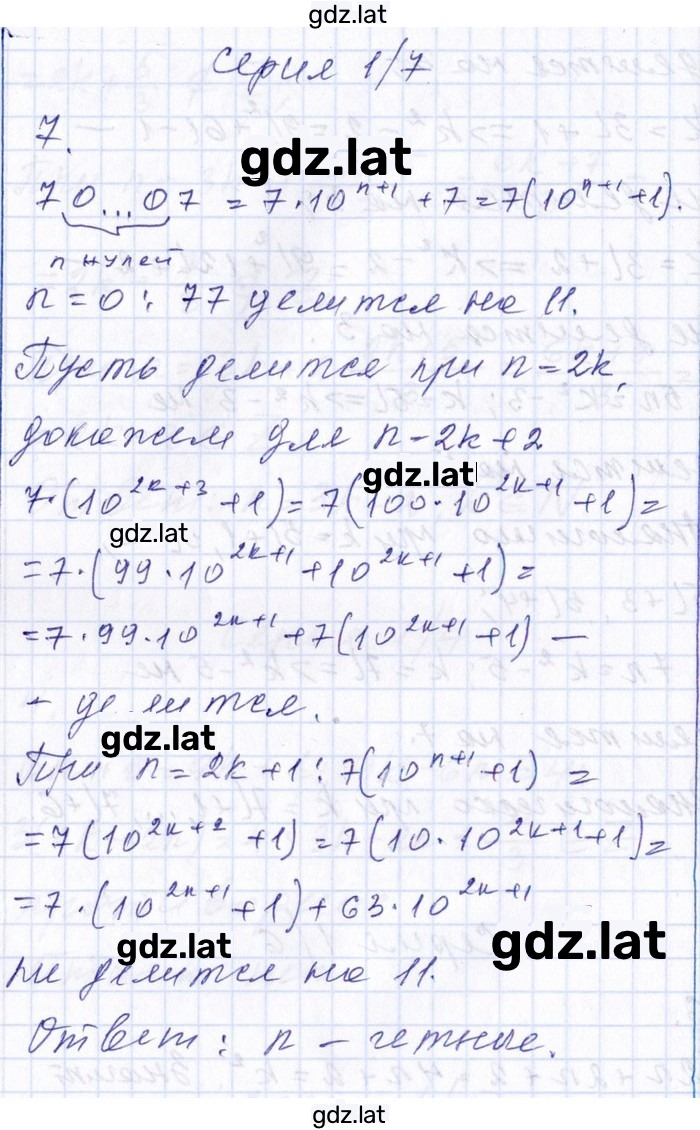 gdz.lat
Серия 1/7
7.
gdz.lat
70...07 = 7·10^{n+1} + 7 = 7(10^{n+1} + 1).
n нулей
n = 0: 77 делится на 11.
Пусть делится при n = 2k,
докажем для n - 2k + 2
gdz.lat
7·(10^{2k+3} + 1) = 7(100·10^{2k+1} + 1) =
gdz.lat
= 7·(99·10^{2k+1} + 10^{2k+1} + 1) =
= 7·99·10^{2k+1} + 7(10^{2k+1} + 1) —
- делится.
gdz.lat
При n = 2k + 1: 7(10^{n+1} + 1) =
= 7(10^{2k+2} + 1) = 7(10·10^{2k+1} + 1) =
= 7·(10^{2k+1} + 1) + 63·10^{2k+1}
gdz.lat
gdz.lat
не делится на 11.
Ответ: n - четные.
gdz.lat